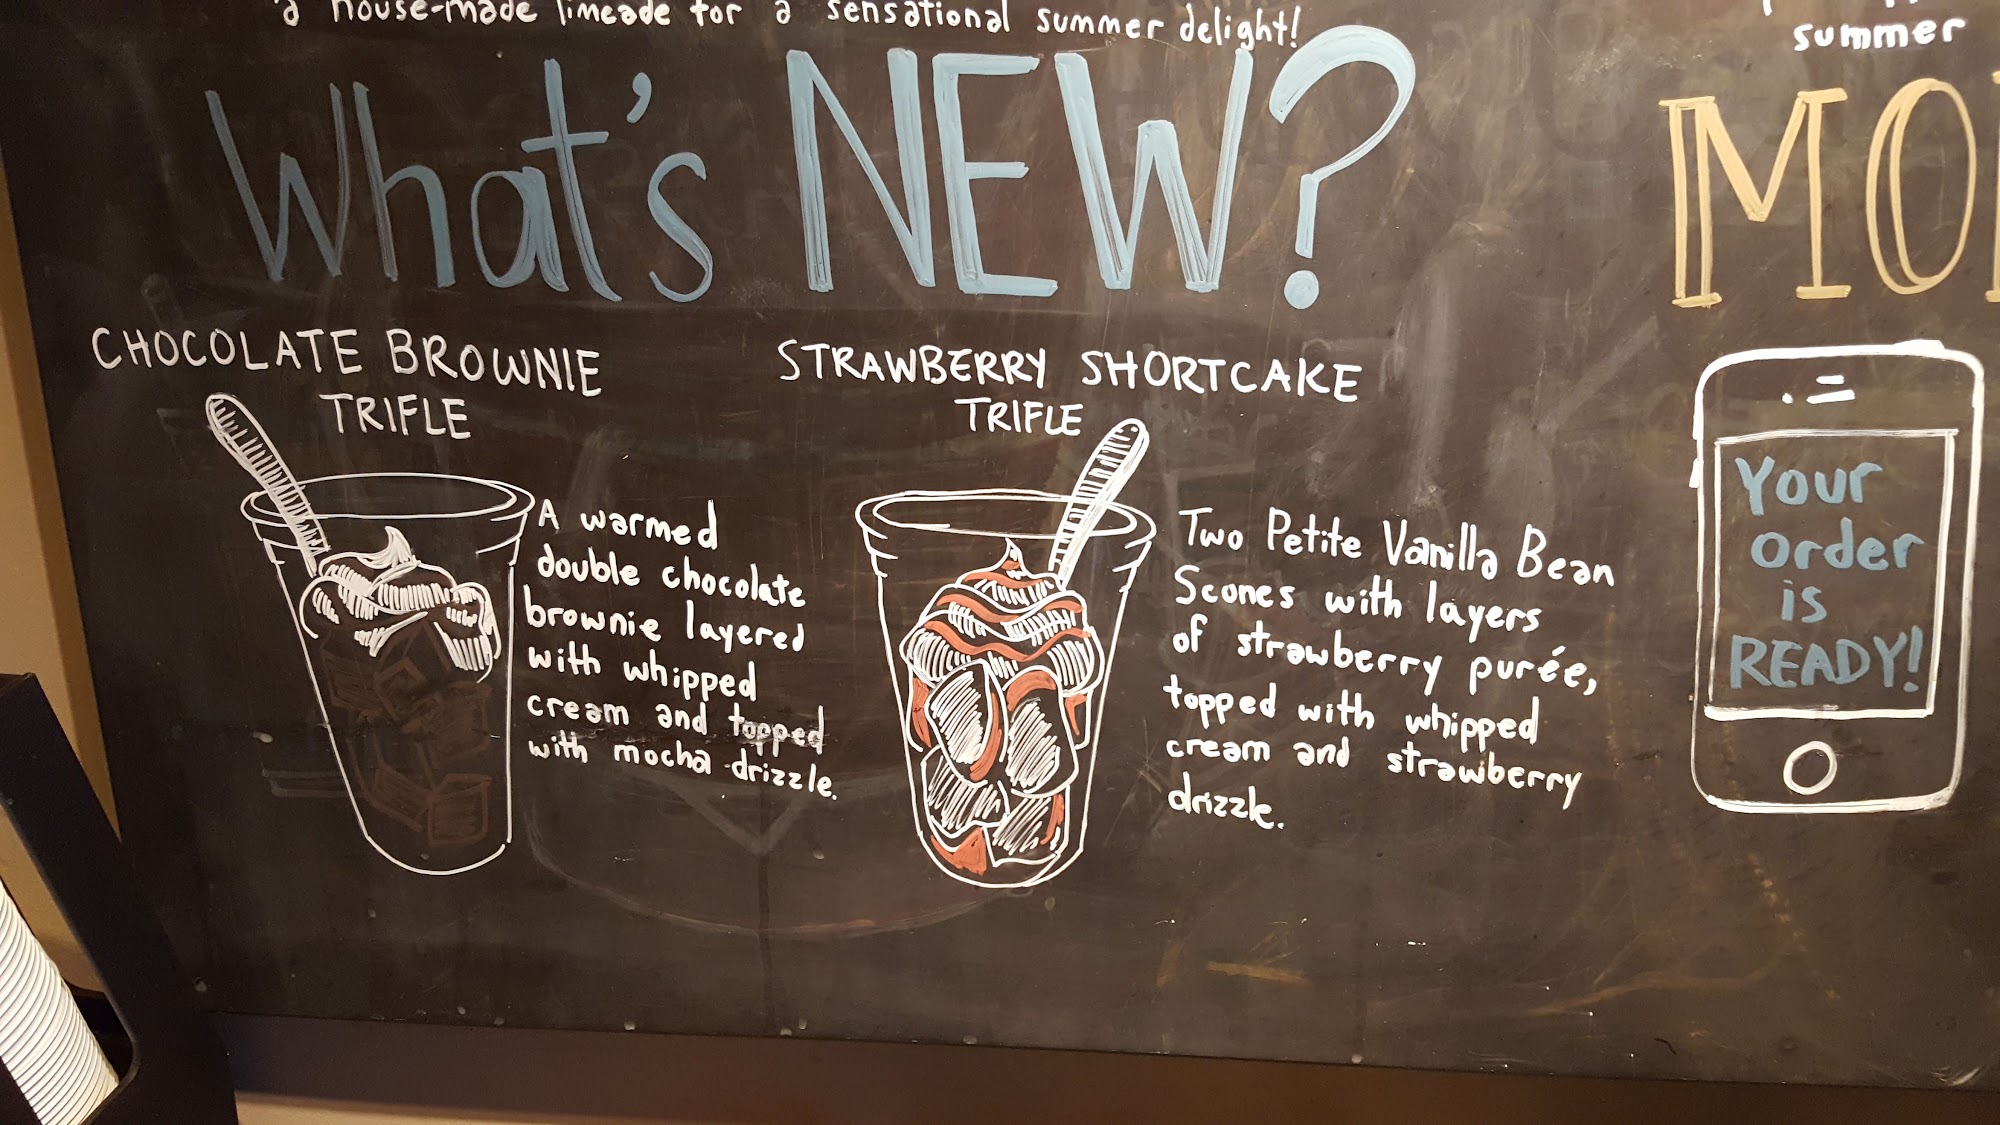 a house-made limeade for a sensational summer delight!
summer
What's NEW?
CHOCOLATE BROWNIE
TRIFLE
A warmed
double chocolate
brownie layered
with whipped
cream and topped
with mocha drizzle.
STRAWBERRY SHORTCAKE
TRIFLE
Two Petite Vanilla Bean
Scones with layers
of strawberry purée,
topped with whipped
cream and strawberry
drizzle.
MO
Your
order
is
READY!